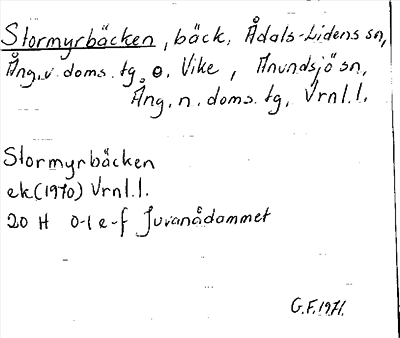 Stormyrbäcken, bäck, Ådals-Lidens sn,
Ång. v. doms. tg. o. Vike, Anundsjö sn,
Ång. n. doms. tg, Vrnl.l.
Stormyrbäcken
ek (1970) Vrnl.l.
20 H 0-1 e-f Juvanådammet
G.F. 1971.